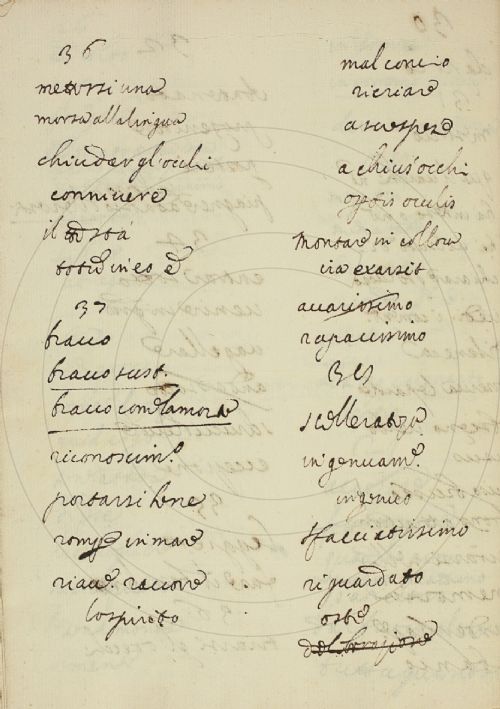 36
mettersi una
morsa alla lingua
chiuder gl'occhi
connivere
il
37
bravo
bravo sust.
bravo
riconoscim.o
portarsi bene
romp. in mare
riav. racorre
lo spirito
mal concio
ricriare
a sue spese
a chius'occhi
op'tis oculis
montare in collora
ira exarsit
avarissimo
rapacissimo
scelleratez.
ingenuam.e
ingenuo
sfacciatissimo
riguardato